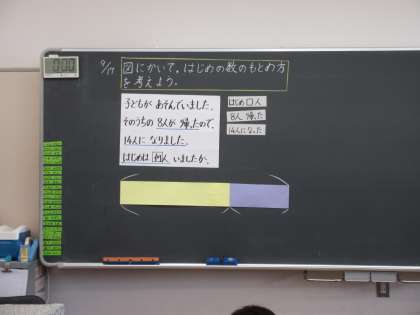 0:00
9/17
図にかいて、はじめの数のもとめ方
を考えよう。
子どもが あそんでいました。
そのうちの 8人が 帰ったので、
14人に なりました。
はじめは 何人 いましたか。
はじめ□人
8人 帰った
14人になった